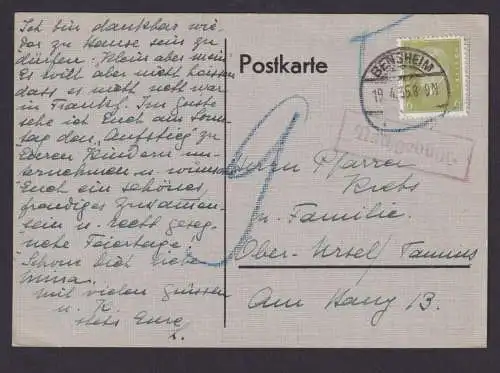 Ich bin dankbar wie-
der zu Hause sein zu
dürfen. "Klein aber mein"
Es will aber nicht heissen
dass es nicht nett war
in Frankf. Im Geiste
sehe ich Euch am Sonn-
tag den "Aufstieg" zu
Euren Kindern un-
ternehmen u. wünsche
Euch ein schönes,
freudiges Zusammen-
sein u. recht geseg-
nete Feiertage!
Schone Dich liebe
Minna.
Mit vielen Grüssen
u. K.
stets Eure
Postkarte
BENSHEIM
19.4.35.8-9N
Nachgebühr
9
Herrn Pfarrer
Krebs
u. Familie
Ober-Ursel/Taunus
Am Hang 13.